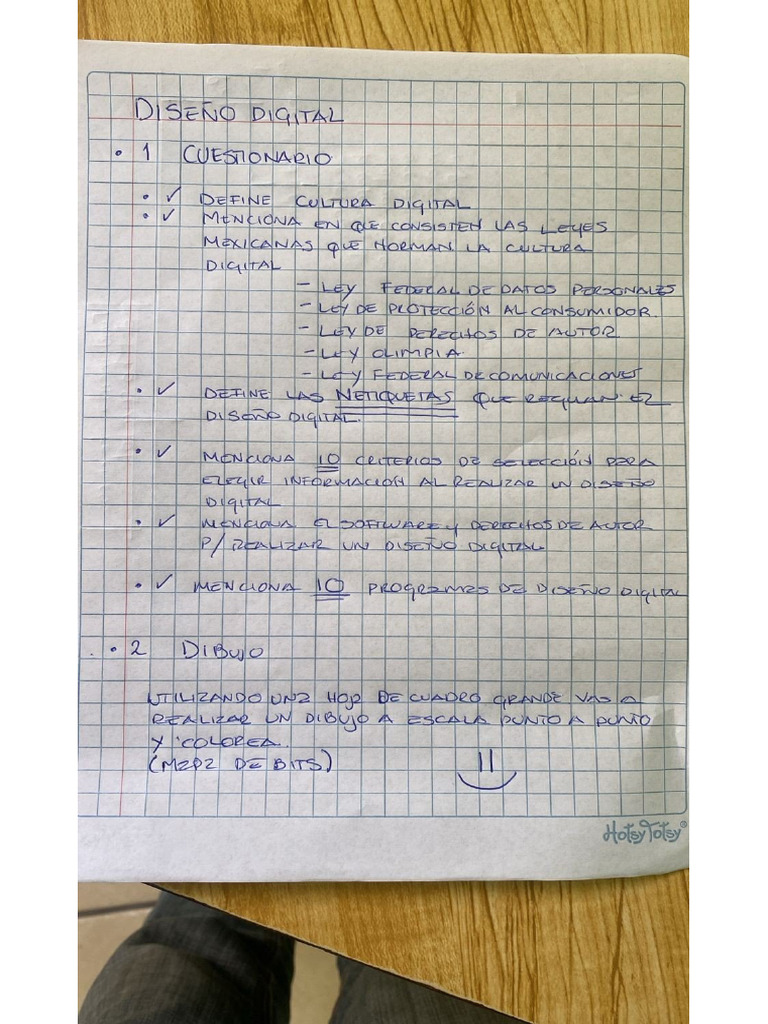 DISEÑO DIGITAL
• 1 CUESTIONARIO
• ✓ DEFINE CULTURA DIGITAL
• ✓ MENCIONA EN QUE CONSISTEN LAS LEYES
MEXICANAS QUE NORMAN LA CULTURA
DIGITAL
- LEY FEDERAL DE DATOS PERSONALES
- LEY DE PROTECCIÓN AL CONSUMIDOR.
- LEY DE DERECHOS DE AUTOR
- LEY OLIMPIA.
- LEY FEDERAL DE COMUNICACIONES
• ✓ DEFINE LAS NETIQUETAS QUE REGULAN EL
DISEÑO DIGITAL.
• ✓ MENCIONA 10 CRITERIOS DE SELECCIÓN PARA
ELEGIR INFORMACIÓN AL REALIZAR UN DISEÑO
DIGITAL
• ✓ MENCIONA EL SOFTWARE Y DERECHOS DE AUTOR
P/ REALIZAR UN DISEÑO DIGITAL
• ✓ MENCIONA 10 PROGRAMAS DE DISEÑO DIGITAL
• 2 DIBUJO
UTILIZANDO UNA HOJA DE CUADRO GRANDE VAS A
REALIZAR UN DIBUJO A ESCALA PUNTO A PUNTO
Y COLOREA.
(MAPA DE BITS)
HotsyTotsy®